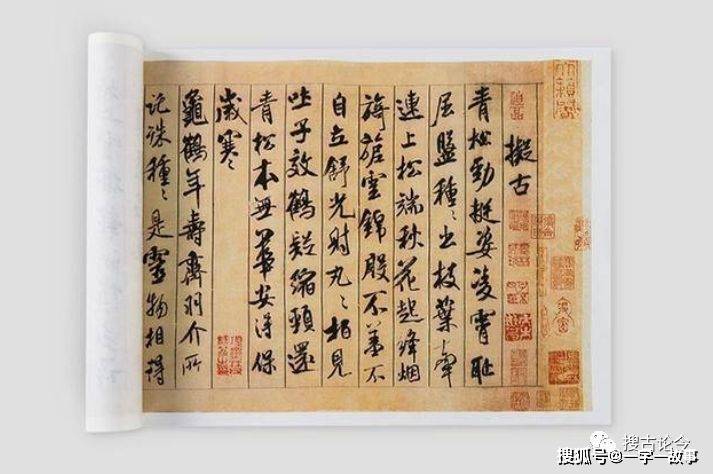 擬古
青松勁挺姿凌霄恥
屈盤種〻出枝葉牽
連上松端秋花起絳烟
旖旎雲錦殷不羞不
自立舒光射丸〻柏見
吐子效鶴疑縮頸還
青松本無華安得保
歲寒
龜鶴年壽齊羽介所
託殊種〻是靈物相得
搜古论今
搜狐号@一字一故事